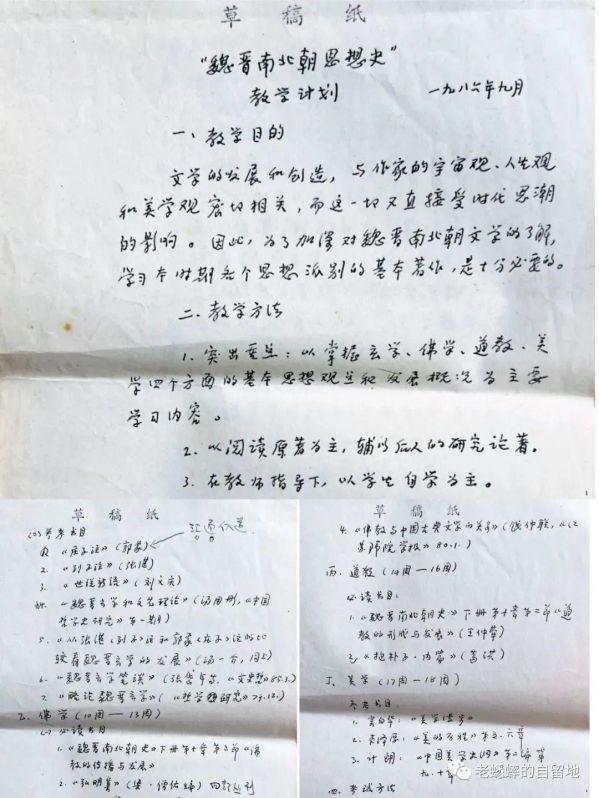 草稿纸
“魏晋南北朝思想史”
教学计划 一九八六年九月
一、教学目的
文学的发展和创造，与作家的宇宙观、人生观
和美学观密切相关，而这一切又直接受时代思潮
的影响。因此，为了加深对魏晋南北朝文学的了解，
学习本时期各个思想派别的基本著作，是十分必要的。
二、教学方法
1. 突出重点：以掌握玄学、佛学、道教、美
学四个方面的基本思想观点和发展概况为主要
学习内容。
2. 以阅读原著为主，辅以后人的研究论著。
3. 在教师指导下，以学生自学为主。
草稿纸
(二)参考书目
《庄子注》(郭象)
2. 《列子注》(张湛)
3. 《世说新语》(刘义庆)
《魏晋玄学和文学理论》(汤用彤，《中国
哲学史研究》第一期)
5. 《从张湛《列子》注和郭象《庄子》注的比
较看魏晋玄学的发展》(汤一介，同上)
6. 《魏晋玄学笔谈》(《文史哲》85.1.)
7. 《略论魏晋玄学》(《哲学研究》79.12.)
乙、佛学(10周—13周)
(一)必读书目
1. 《魏晋南北朝史》下册第十章第三节《佛
教的传播与发展》
2. 《弘明集》(梁·僧佑编) 四部丛刊
草稿纸
4. 《佛教与中国古典文学的关系》(钱仲联，《江
苏师院学报》80.1.)
丙、道教(14周—16周)
必读书目：
1. 《魏晋南北朝史》下册第十章第二节《道
教的形成与发展》(王仲荦)
2. 《抱朴子·内篇》(葛洪)
丁、美学(17周—18周)
参考书目：
1. 宗白华：《美学漫步》
2. 李泽厚：《美的历程》第五、六章
3. 叶朗：《中国美学史大纲》第二编第
九、十章
四、考试方法
老蟋蟀的自留地